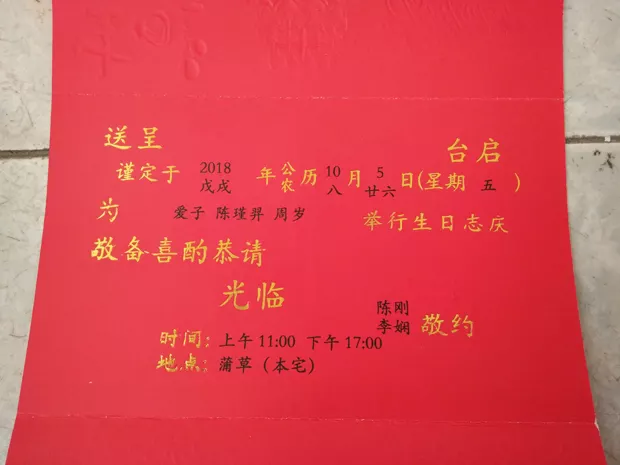 送呈 台启
谨定于 2018 年 公 历 10 月 5 日(星期 五 )
戊戌 农 八 廿六
为 爱子 陈瑾羿 周岁 举行生日志庆
敬备喜酌恭请
光临
陈刚
李娴 敬约
时间: 上午 11:00 下午 17:00
地点: 蒲草（本宅）